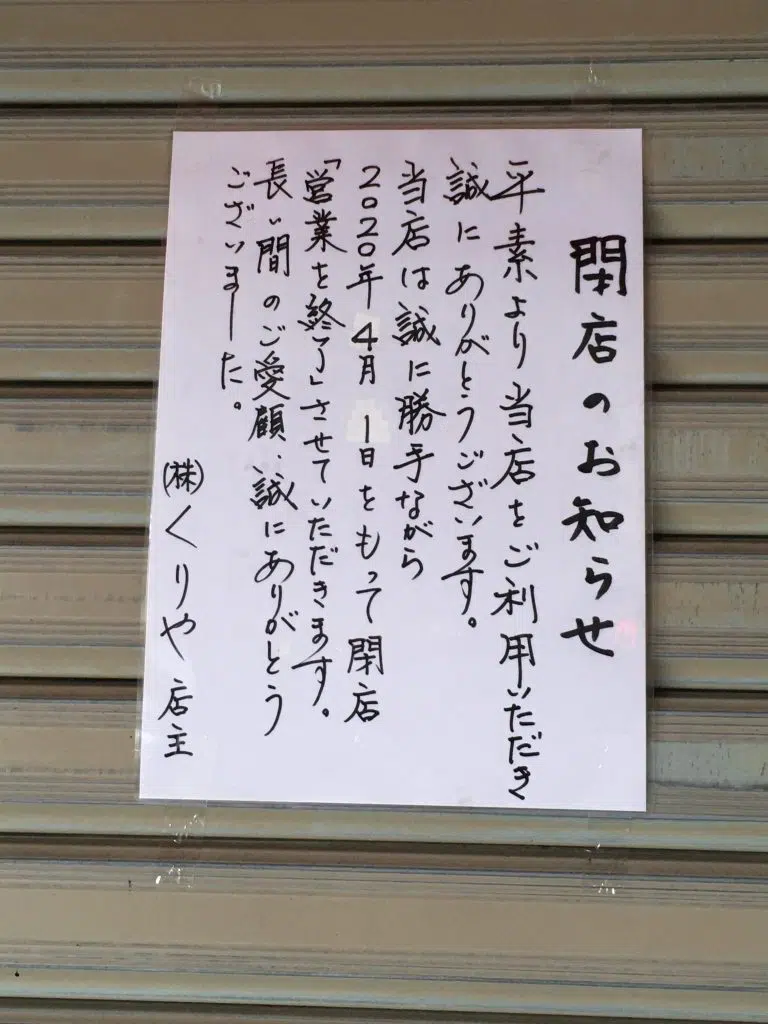 閉店のお知らせ
平素より当店をご利用いただき
誠にありがとうございます。
当店は誠に勝手ながら
2020年4月1日をもって閉店
「営業を終了」させていただきます。
長い間のご愛顧、誠にありがとう
ございました。
㈱くりや店主